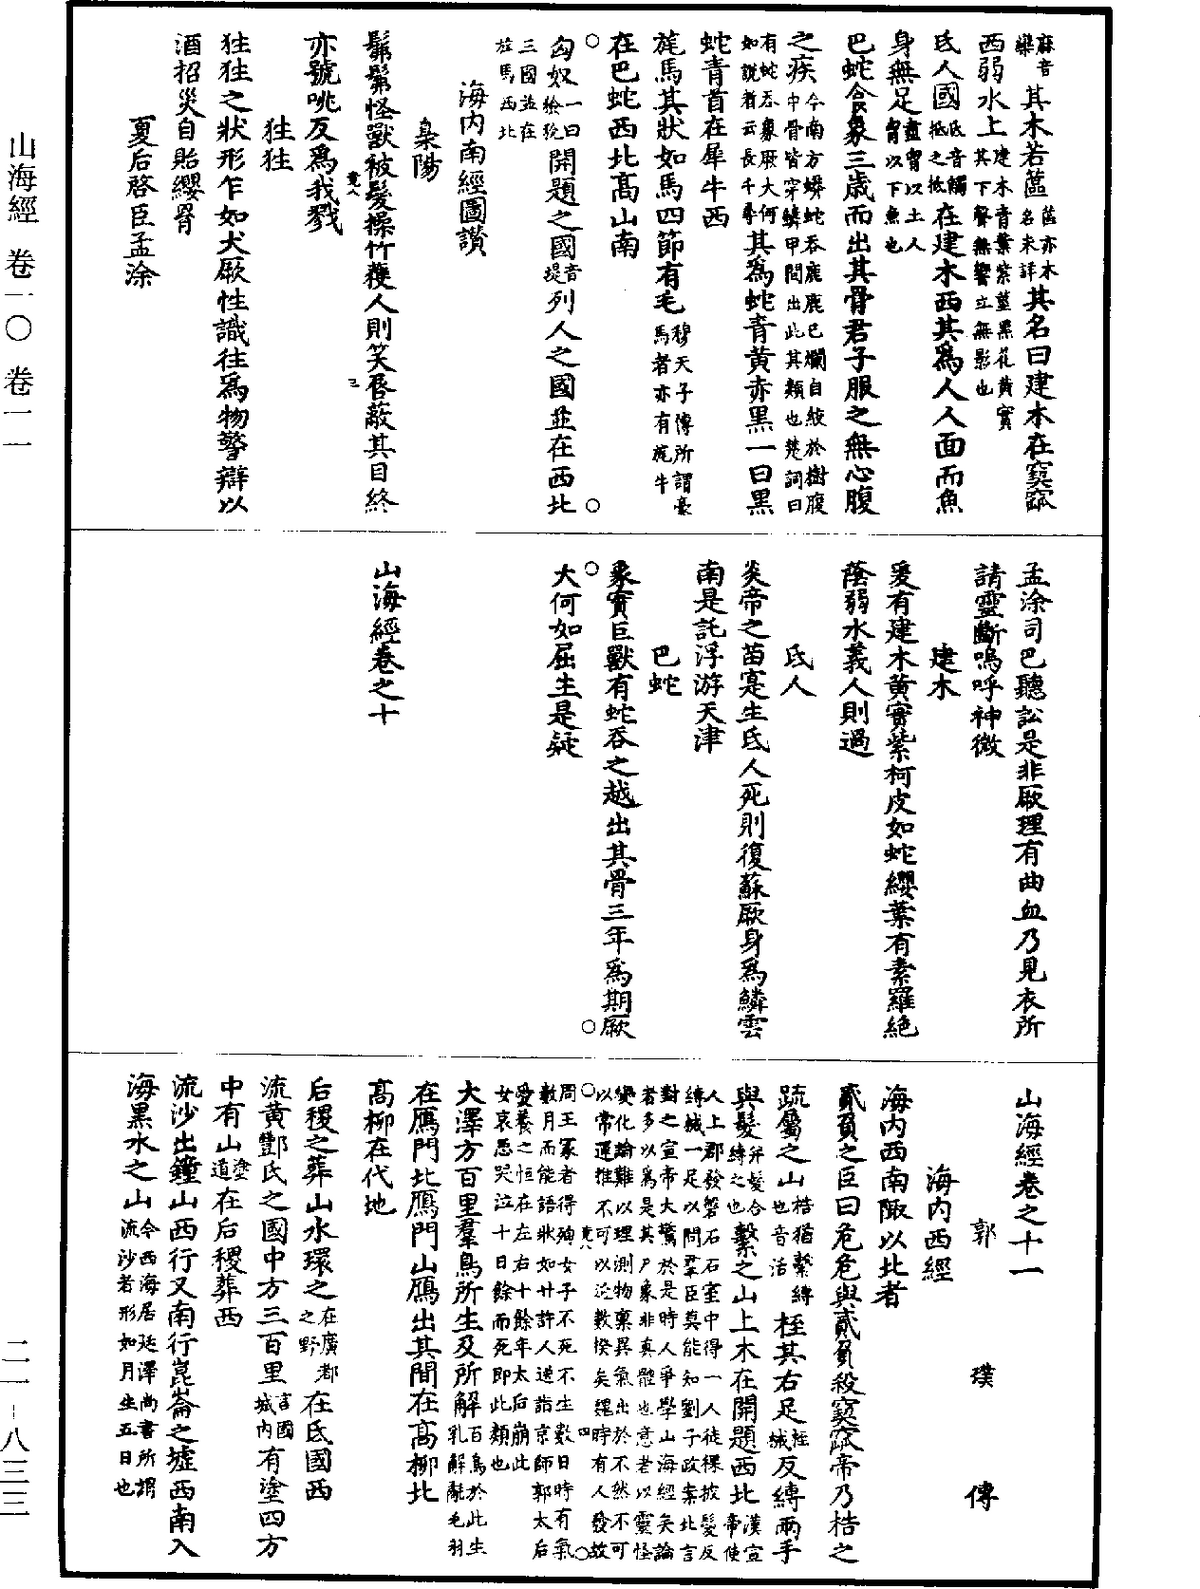 山海經 卷一〇 卷一一
二一-八三三
麻音
欒其木若蓲蓲亦木
名未詳其名曰建木在窫窳
西弱水上建木青葉紫莖黑花黃實
其下聲無響立無影也
氐人國氐音觸
抵之抵在建木西其為人人面而魚
身無足盡胷以上人
胷以下魚也
巴蛇食象三歲而出其骨君子服之無心腹
之疾今南方蟒蛇吞鹿鹿已爛自絞於樹腹
中骨皆穿鱗甲間出此其類也楚詞曰
有蛇吞象厥大何
如說者云長千尋其為蛇青黃赤黑一曰黑
蛇青首在犀牛西
旄馬其狀如馬四節有毛穆天子傳所謂豪
馬者亦有旄牛
在巴蛇西北高山南
匈奴一曰
獫狁開題之國音
提列人之國並在西北
三國並在
旄馬西北
海内南經圖讚
梟陽
髴髴怪獸被髮操竹獲人則笑唇蔽其目終
亦號咷反為我戮
狌狌
狌狌之狀形乍如犬厥性識往為物警辯以
酒招災自貽纓罥
夏后啓臣孟涂
孟涂司巴聽訟是非厥理有曲血乃見衣所
請靈斷嗚呼神微
建木
爰有建木黃實紫柯皮如蛇纓葉有素羅絕
蔭弱水義人則過
氐人
炎帝之苗寔生氐人死則復蘇厥身為鱗雲
南是託浮游天津
巴蛇
象實巨獸有蛇吞之越出其骨三年為期厥
大何如屈生是疑
山海經卷之十
山海經卷之十一
郭 璞 傳
海内西經
海内西南陬以北者
貳負之臣曰危危與貳負殺窫窳帝乃梏之
疏屬之山梏猶繫縛
也音活桎其右足桎
械反縛兩手
與髮并髮合
縛之也繫之山上木在開題西北漢宣
帝使
人上郡發磐石石室中得一人徒裸被髮反
縛械一足以問羣臣莫能知劉子政案此言
對之宣帝大驚於是時人爭學山海經矣論
者多以為是其尸象非真體也意者以靈怪
變化論難以理測物稟異氣出於不然不可
以常運推不可以近數揆矣魏時有人發故
周王冢者得殉女子不死不生數日時有氣
數月而能語狀如廿許人送詣京師郭太后
愛養之恒在左右十餘年太后崩此
女哀思哭泣十日餘而死即此類也
大澤方百里羣鳥所生及所解百鳥於此生
乳解毻毛羽
在鴈門北鴈門山鴈出其間在高柳北
高柳在代地
后稷之葬山水環之在廣都
之野在氐國西
流黃酆氏之國中方三百里言國
城内有塗四方
中有山塗
道在后稷葬西
流沙出鐘山西行又南行崑崙之墟西南入
海黑水之山今西海居延澤尚書所謂
流沙者形如月生五日也